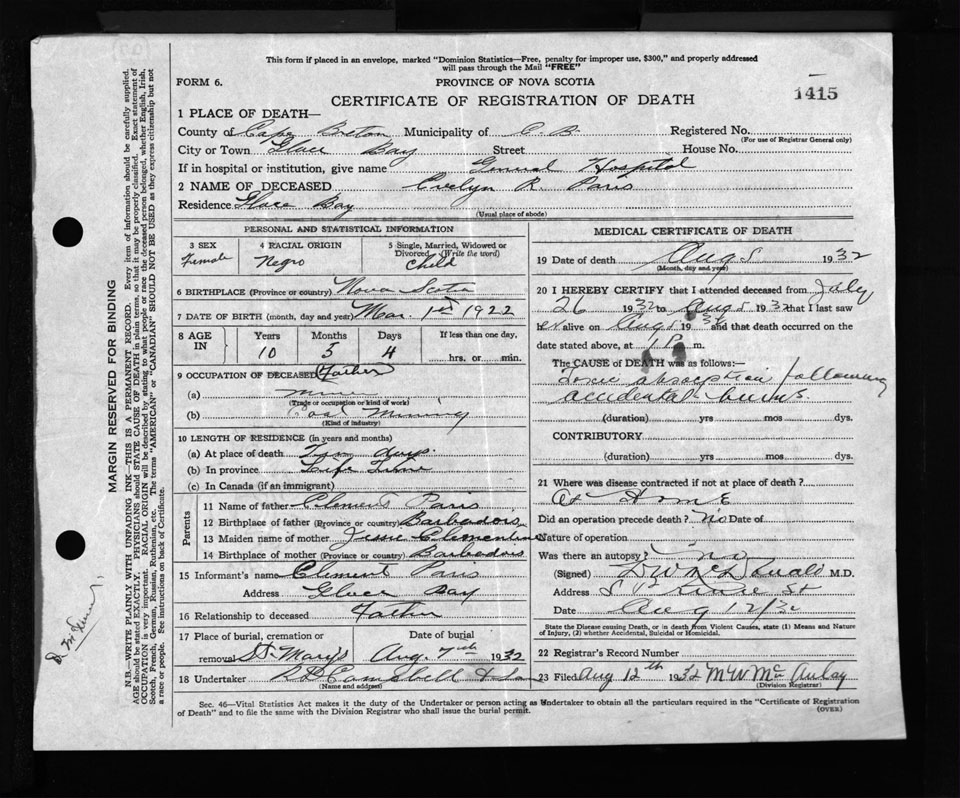 This form if placed in an envelope, marked "Dominion Statistics—Free, penalty for improper use, $300," and properly addressed
will pass through the Mail "FREE"
FORM 6.
PROVINCE OF NOVA SCOTIA
CERTIFICATE OF REGISTRATION OF DEATH
1415
1 PLACE OF DEATH—
County of Cape Breton Municipality of C B. Registered No.
(For use of Registrar General only)
City or Town Glace Bay Street House No.
If in hospital or institution, give name General Hospital
2 NAME OF DECEASED Evelyn R. Paris
Residence Glace Bay
(Usual place of abode)
PERSONAL AND STATISTICAL INFORMATION
3 SEX
Female
4 RACIAL ORIGIN
Negro
5 Single, Married, Widowed or
Divorced (Write the word)
Child
6 BIRTHPLACE (Province or country) Nova Scotia
7 DATE OF BIRTH (month, day and year) Mar. 1st 1922
8 AGE
IN
Years
10
Months
5
Days
4
If less than one day,
hrs. or min.
9 OCCUPATION OF DECEASED Father
(a)
(Trade or occupation or kind of work)
(b) Coal Mining
(Kind of industry)
10 LENGTH OF RESIDENCE (in years and months)
(a) At place of death days.
(b) In province Life Time
(c) In Canada (if an immigrant)
Parents
11 Name of father Clement Paris
12 Birthplace of father (Province or country) Barbados
13 Maiden name of mother Jessie Clementine
14 Birthplace of mother (Province or country) Barbados
15 Informant's name Clement Paris
Address Glace Bay
16 Relationship to deceased Father
17 Place of burial, cremation or
removal St. Marys
Date of burial
Aug. 7th 1932
18 Undertaker Campbell & Son
(Name and address)
MEDICAL CERTIFICATE OF DEATH
19 Date of death Aug 5 1932
(Month, day and year)
20 I HEREBY CERTIFY that I attended deceased from July
26 1932 to Aug 5 1932 that I last saw
er alive on Aug 5 1932 and that death occurred on the
date stated above, at 1 P m.
The CAUSE of DEATH was as follows:—
Toxic absorption following
accidental burns.
(duration) yrs mos dys.
CONTRIBUTORY
(duration) yrs mos dys.
21 Where was disease contracted if not at place of death?
At Home
Did an operation precede death? No Date of
Nature of operation
Was there an autopsy? no
(Signed) M.D.
Address St
Date Aug 12/32
State the Disease causing Death, or in death from Violent Causes, state (1) Means and Nature
of Injury, (2) whether Accidental, Suicidal or Homicidal.
22 Registrar's Record Number
23 Filed Aug 12th 1932 M W McAulay
(Division Registrar)
Sec. 46—Vital Statistics Act makes it the duty of the Undertaker or person acting as Undertaker to obtain all the particulars required in the "Certificate of Registration
of Death" and to file the same with the Division Registrar who shall issue the burial permit.
(OVER)
MARGIN RESERVED FOR BINDING
N.B.—WRITE PLAINLY WITH UNFADING INK—THIS IS A PERMANENT RECORD. Every item of information should be carefully supplied.
AGE should be stated EXACTLY. PHYSICIANS should STATE CAUSE OF DEATH in plain terms, so that it may be properly classified. Exact statement of
OCCUPATION is very important. RACIAL ORIGIN will be described by stating to what people or race the deceased person belonged, whether English, Irish,
Scotch, French, German, Russian, Ruthenian, etc. The terms "AMERICAN" or "CANADIAN" SHOULD NOT BE USED as they express citizenship but not
a race or people. See instructions on back of Certificate.